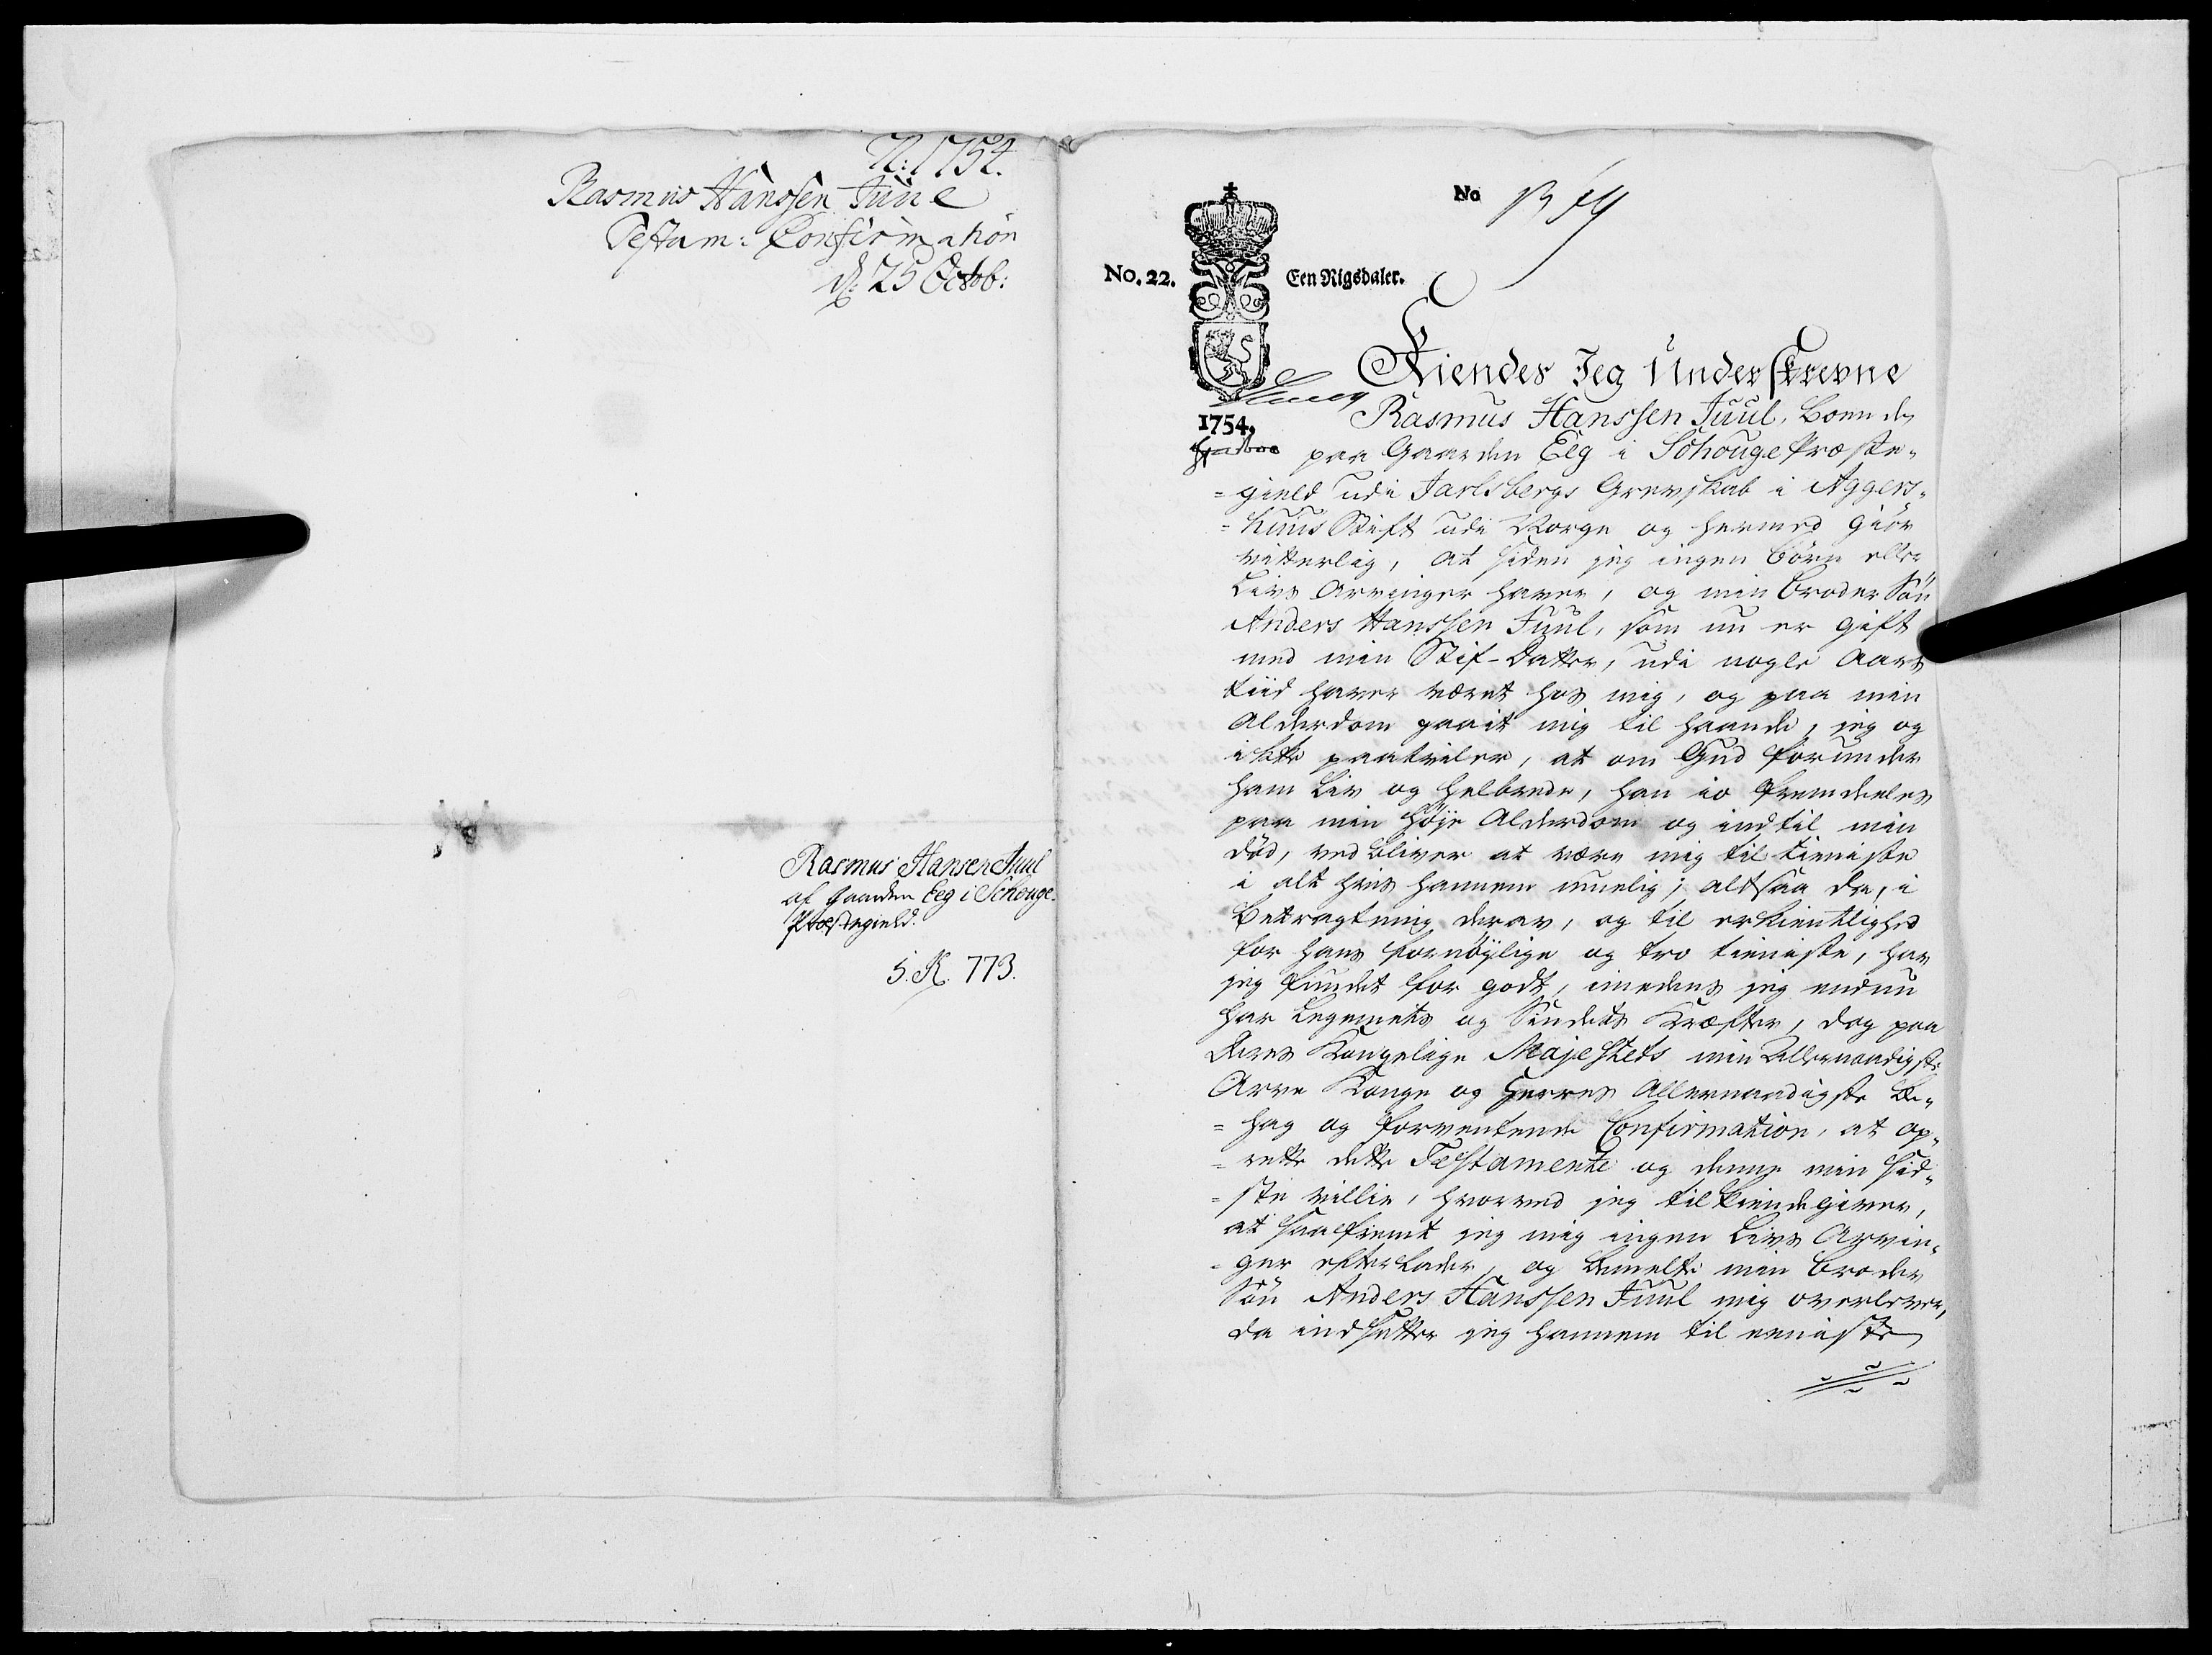 N: 1754.
Rasmus Hanssen Juul
Testam: Confirmation
d: 25 Octob:
Rasmus Hansen Juul
af gaarden Eeg i Schouge
Præstegield.
S. K. 773.
No
No. 22.
Een Rigsdaler.
1754.
Kiendes Jeg Underskrevne
Rasmus Hanssen Juul, boende
paa Gaarden Eeg i Schouge Præste-
=gield udi Jarlsbergs Grevskab i Aggers-
=huus Stift udi Norge og hermed giør
vitterlig, at siden jeg ingen børn eller
Livs Arvinger haver, og min broder Søn
Anders Hanssen Juul, som nu er gift
med min Stif-Datter, udi nogle Aars
tiid haver været hos mig, og paa min
Alderdom gaait mig til haande, jeg og
ikke paatviler, at om Gud forunder
ham Liv og helbrede, han io fremdeeles
paa min høje Alderdom og indtil min
død, ved bliver at være mig til tieniste
i alt hvis hannem muelig; altsaa da, i
betragtning derav, og til erkientlighed
for hans fornøylige og tro tieniste, har
jeg fundet for godt, imedens jeg endnu
har Legemets og Sindets Kræfter, dog paa
Deres Kongelige Majestets min Allernaadigste
Arve Konge og Herres Allernaadigste Be-
=hag og forventende Confirmation, at op-
=rette dette Testamente og denne min Sid-
=ste villie, hvorved jeg tilkiendegiver,
at saafremt jeg mig ingen Livs Arvin-
=ger efterlader, og bemelte min broder
Søn Anders Hanssen Juul mig overlever,
da indsætter jeg hannem til eeniste